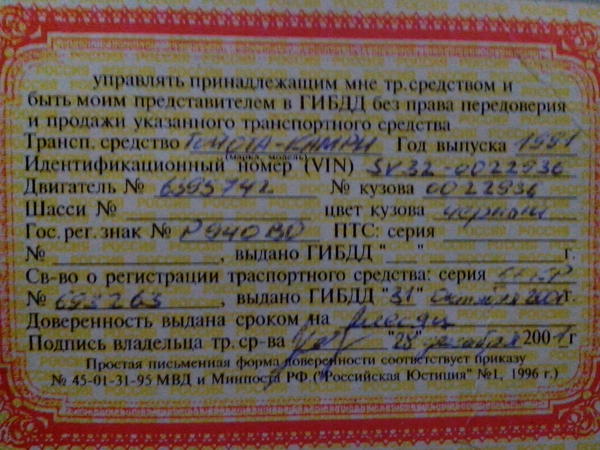 управлять принадлежащим мне тр.средством и
быть моим представителем в ГИБДД без права передоверия
и продажи указанного транспортного средства
Трансп. средство ТОЙОТА-КАМРИ Год выпуска 1991
(марка, модель)
Идентификационный номер (VIN) SV32-0022936
Двигатель № 6393742 № кузова 0022936
Шасси № цвет кузова черный
Гос.рег.знак № Р940ВО ПТС: серия
№ , выдано ГИБДД " " г.
Св-во о регистрации траспортного средства: серия
№ 693263, выдано ГИБДД "31" октября 2001г.
Доверенность выдана сроком на месяц
Подпись владельца тр. ср-ва "28" декабря 2001г
Простая письменная форма доверенности соответствует приказу
№ 45-01-31-95 МВД и Минюста РФ ("Российская Юстиция" №1, 1996 г.)